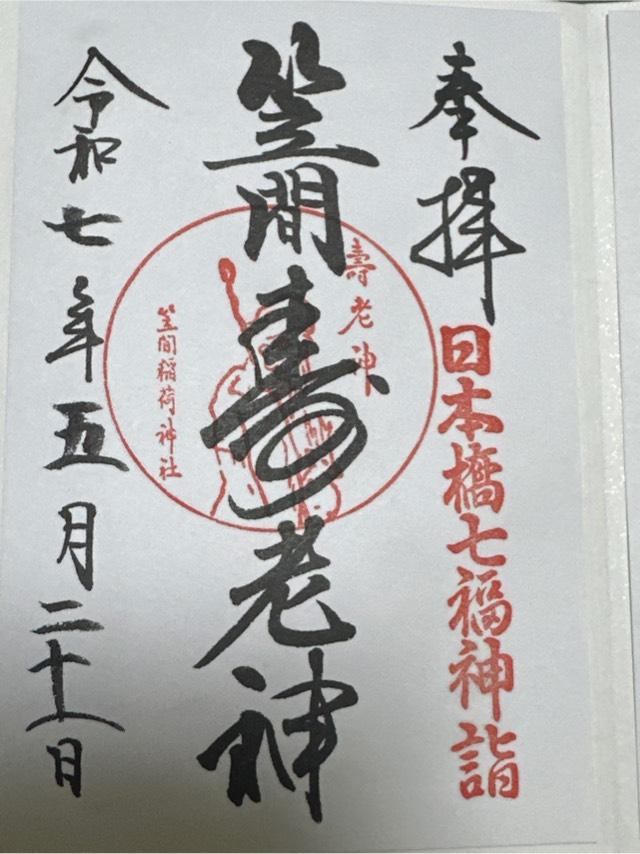 奉拝
日本橋七福神詣
笠間寿老神
壽老神
笠間稲荷神社
令和七年五月二十日